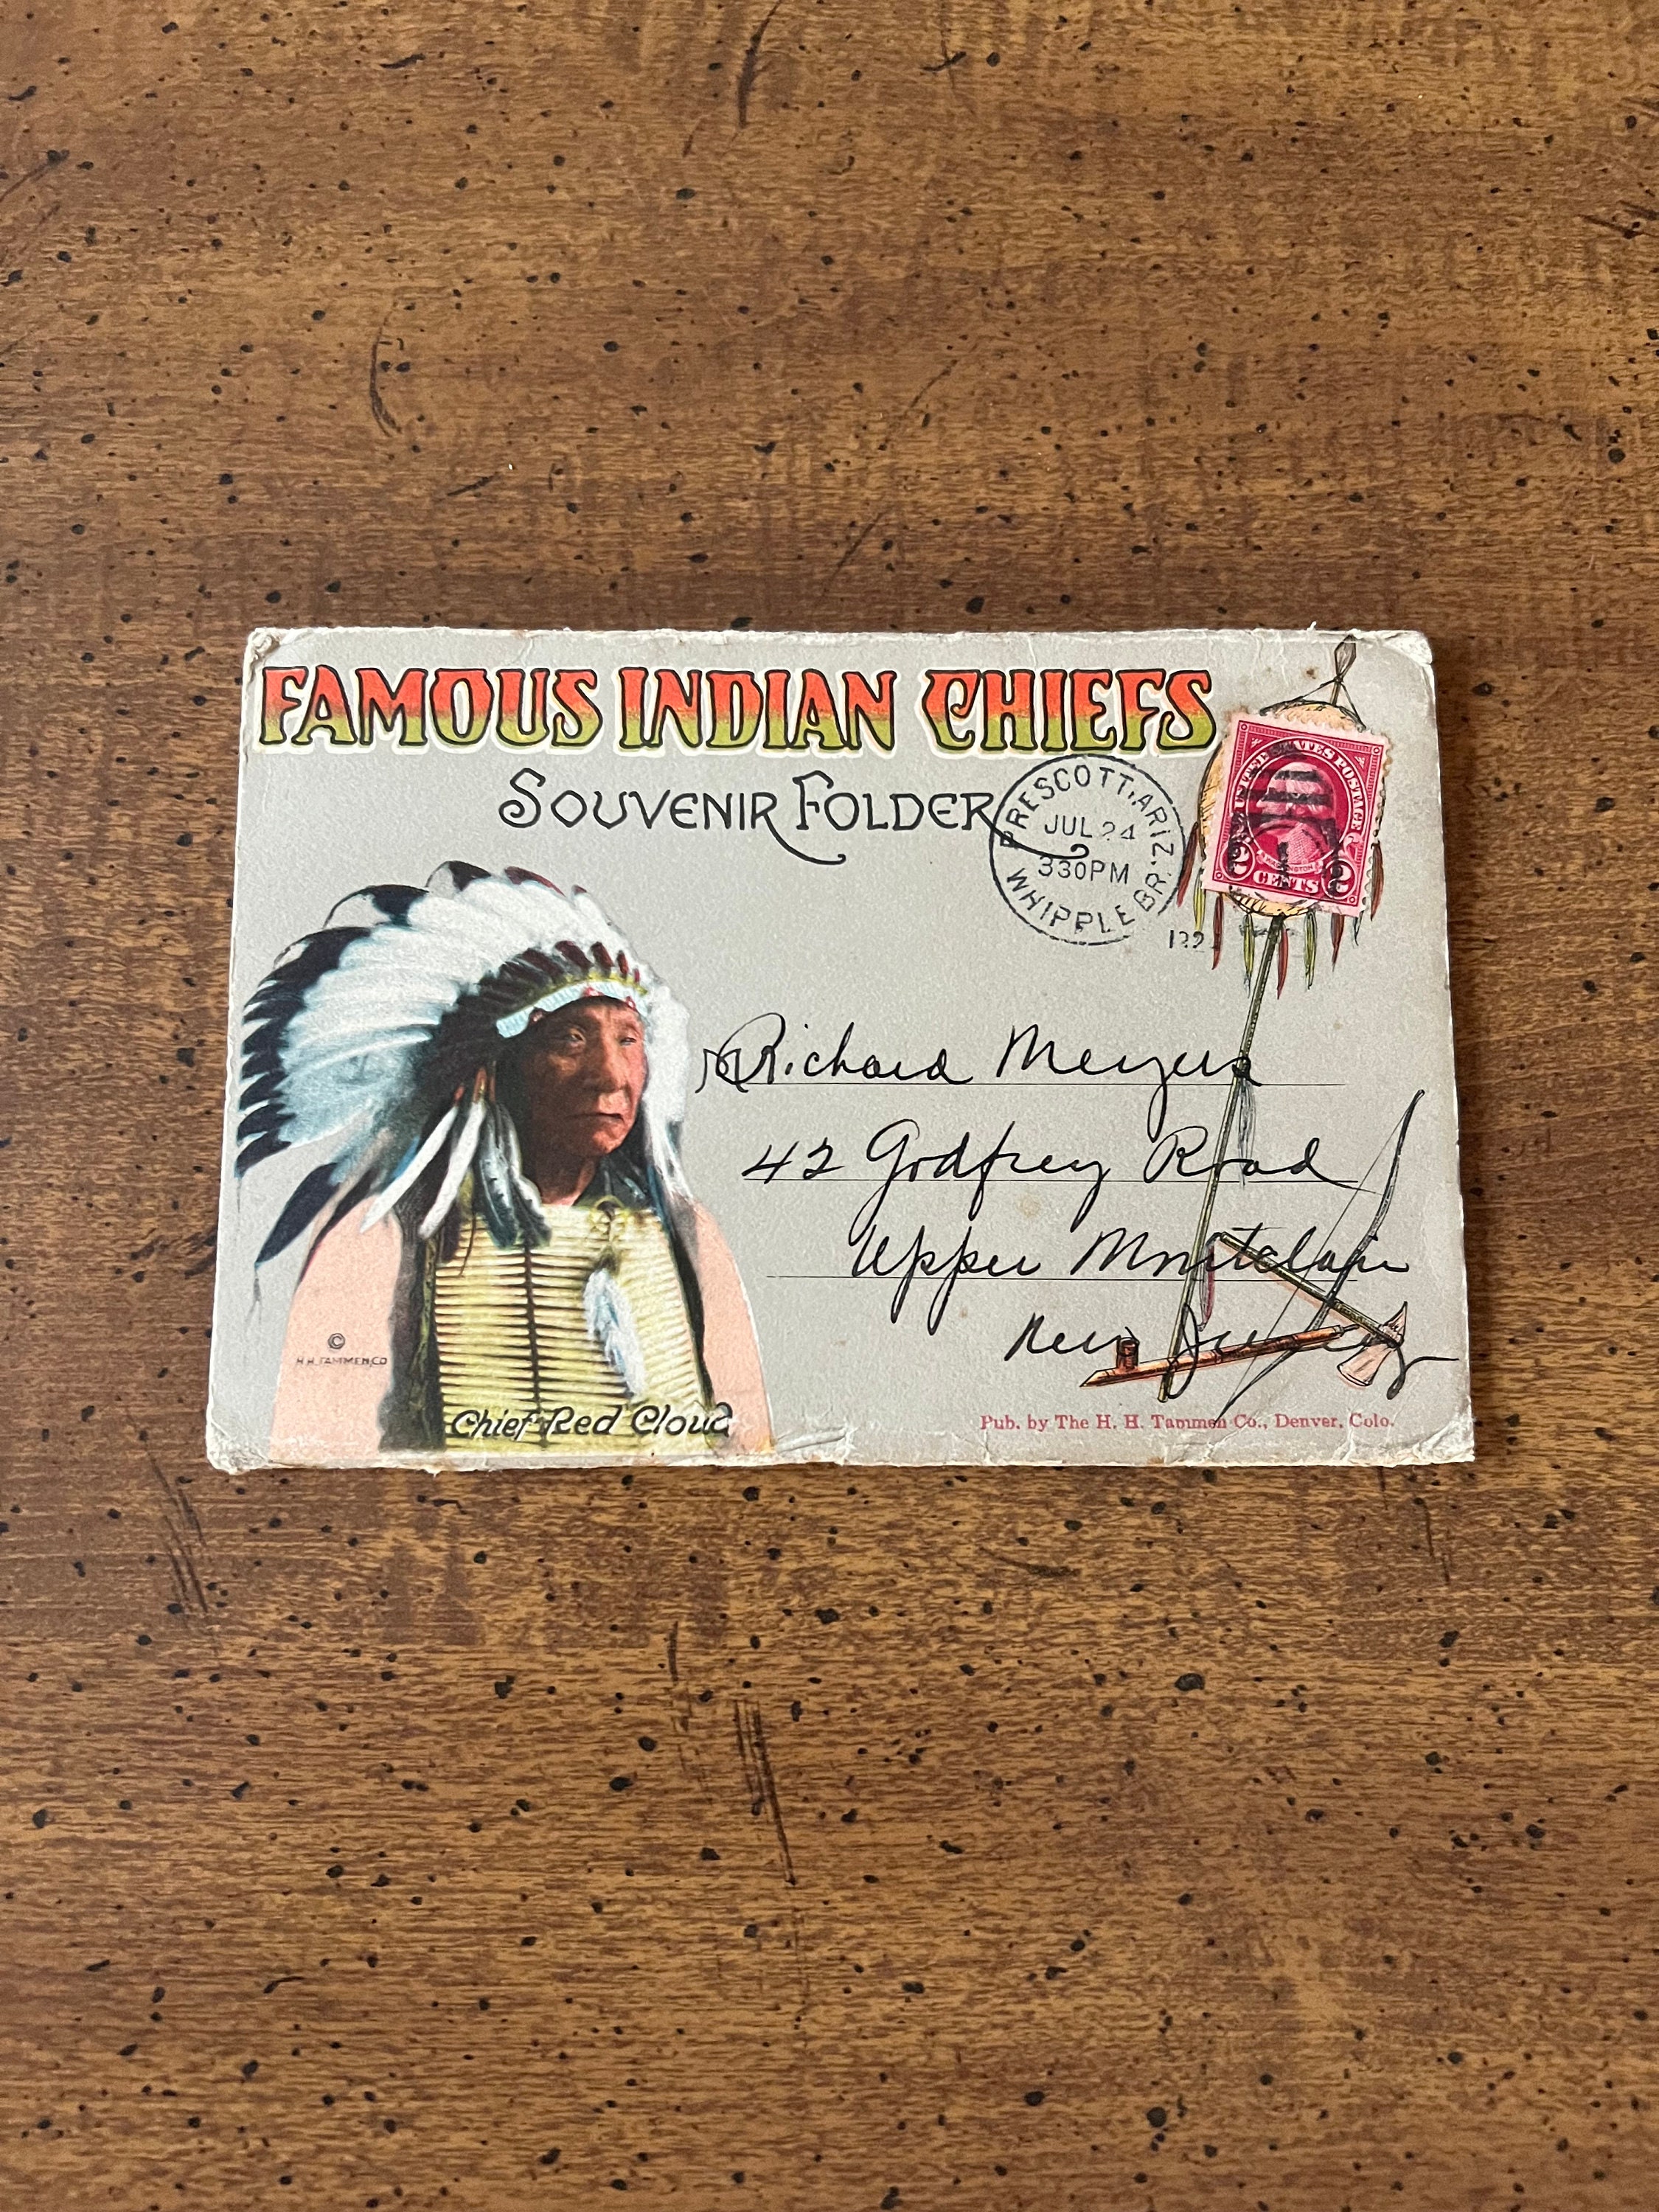 FAMOUS INDIAN CHIEFS
SOUVENIR FOLDER
PRESCOTT, ARIZ.
JUL 24
330PM
WHIPPLE BR.
UNITED STATES POSTAGE
WASHINGTON
2 CENTS 2
Richard Meyers
42 Godfrey Road
Upper Montclair
New Jersey
©
H.H. TAMMEN CO
Chief Red Cloud
Pub. by The H. H. Tammen Co., Denver, Colo.